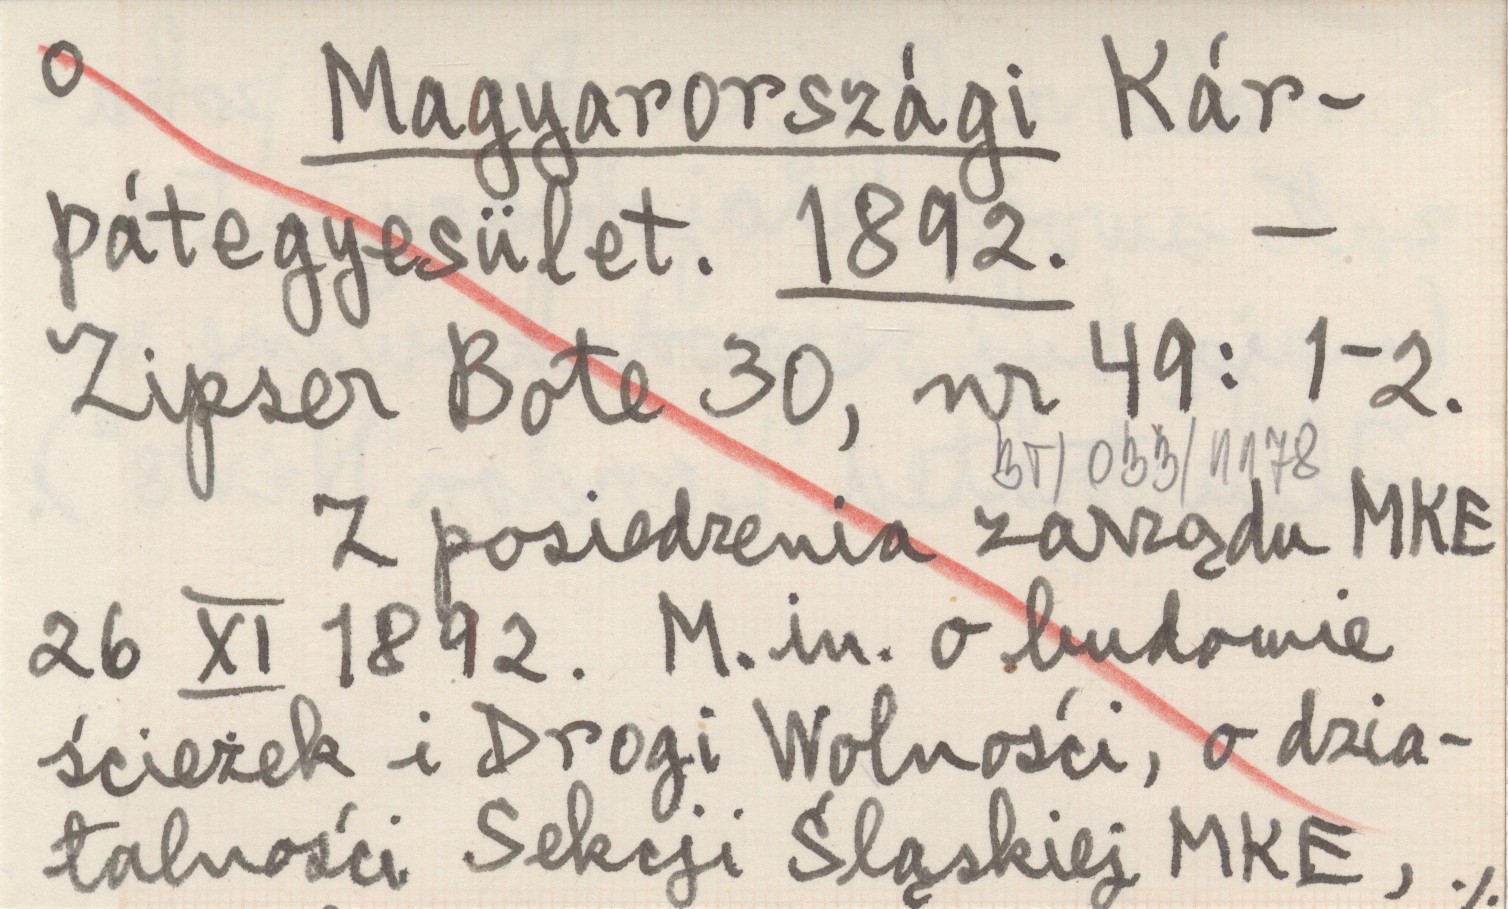 o Magyarországi Kár-
pátegyesület. 1892. —
Zipser Bote 30, nr 49: 1-2.
BT/033/1178
Z posiedzenia zarządu MKE
26 XI 1892. M. in. o budowie
ścieżek i Drogi Wolności, o dzia-
łalności Sekcji Śląskiej MKE, ./.